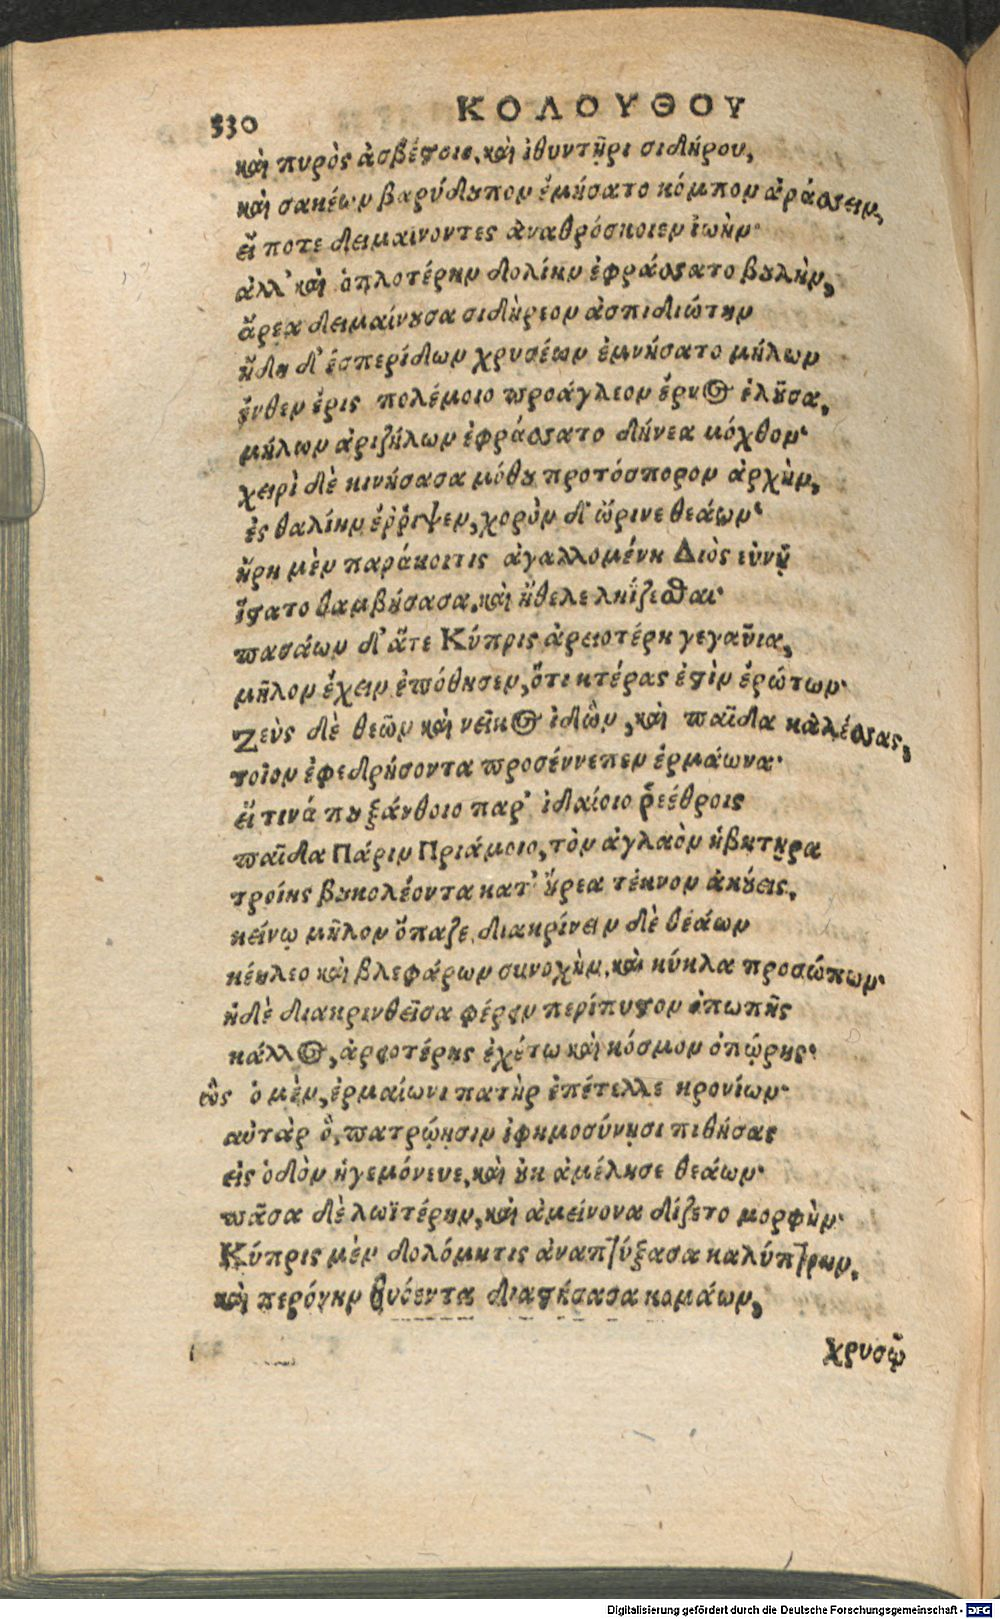 330 ΚΟΛΟΥΘΟΥ
καὶ πυρὸς ἀσβέστοιο, καὶ ἰθυντῆρι σιδήρου,
καὶ σακέων βαρύδουπον ἐμήσατο κόμπον ἀράσσειν,
εἴ ποτε δειμαίνοντες ἀναθρόσκοιεν ἰωὴν·
ἀλλ' καὶ ὁπλοτέρην δολίην ἐφράσσατο βουλὴν,
ἄρεα δειμαίνουσα σιδήρεον ἀσπιδιώτην
ἤδη δ' ἑσπερίδων χρυσέων ἐμνήσατο μήλων
ἔνθεν ἔρις πολέμοιο προάγγλεον ἔρνος ἑλοῦσα,
μήλων ἀριζήλων ἐφράσσατο δήνεα μόχθον·
χειρὶ δὲ κινήσασα μόθου πρωτόσπορον ἀρχὴν,
ἐς θαλίην ἔῤῥιψεν, χορὸν δ' ὤρινε θεάων·
ἥρη μὲν παράκοιτις ἀγαλλομένη Διὸς εὐνῇ
ἵστατο θαμβήσασα, καὶ ἤθελε ληΐζεσθαι·
πασάων δ' ἅτε Κύπρις ἀρειοτέρη γεγαῦια,
μῆλον ἔχειν ἐπόθησεν, ὅτι κτέρας ἐστὶν ἐρώτων·
Ζεὺς δὲ θεῶν καὶ νεῖκος ἰδὼν, καὶ παῖδα καλέσσας,
τοῖον ἐφεδρήσοντα προσέννεπεν ἑρμάωνα·
εἴ τινά που ξάνθοιο παρ' ἰδαίοιο ῥεέθροις
παῖδα Πάριν Πριάμοιο, τὸν ἀγλαὸν ἡβητῆρα
τροίης βουκολέοντα κατ' οὔρεα τέκνον ἀκούεις,
κείνῳ μῆλον ὄπαζε, διακρίνειν δὲ θεάων
κέκλεο καὶ βλεφάρων συνοχὴν, καὶ κύκλα προσώπων·
ἡ δὲ διακρινθεῖσα φέρειν περίπυστον ὀπωπῆς
κάλλος, ἀρειοτέρης ἐχέτω καὶ κόσμον ὀπώρης·
ὣς ὁ μὲν, ἑρμαίωνι πατὴρ ἐπέτελλε κρονίων·
αὐτὰρ ὃ, πατρῴησιν ἐφημοσύνῃσι πιθήσας
εἰς ὁδὸν ἡγεμόνευε, καὶ οὐκ ἀμέλησε θεάων·
πᾶσα δὲ λωϊτέρην, καὶ ἀμείνονα δίζετο μορφὴν·
Κύπρις μὲν δολόμητις ἀναπτύξασα καλύπτρην,
καὶ περόνην θυόεντα διαστήσασα κομάων,
χρυσῷ
Digitalisierung gefördert durch die Deutsche Forschungsgemeinschaft - DFG